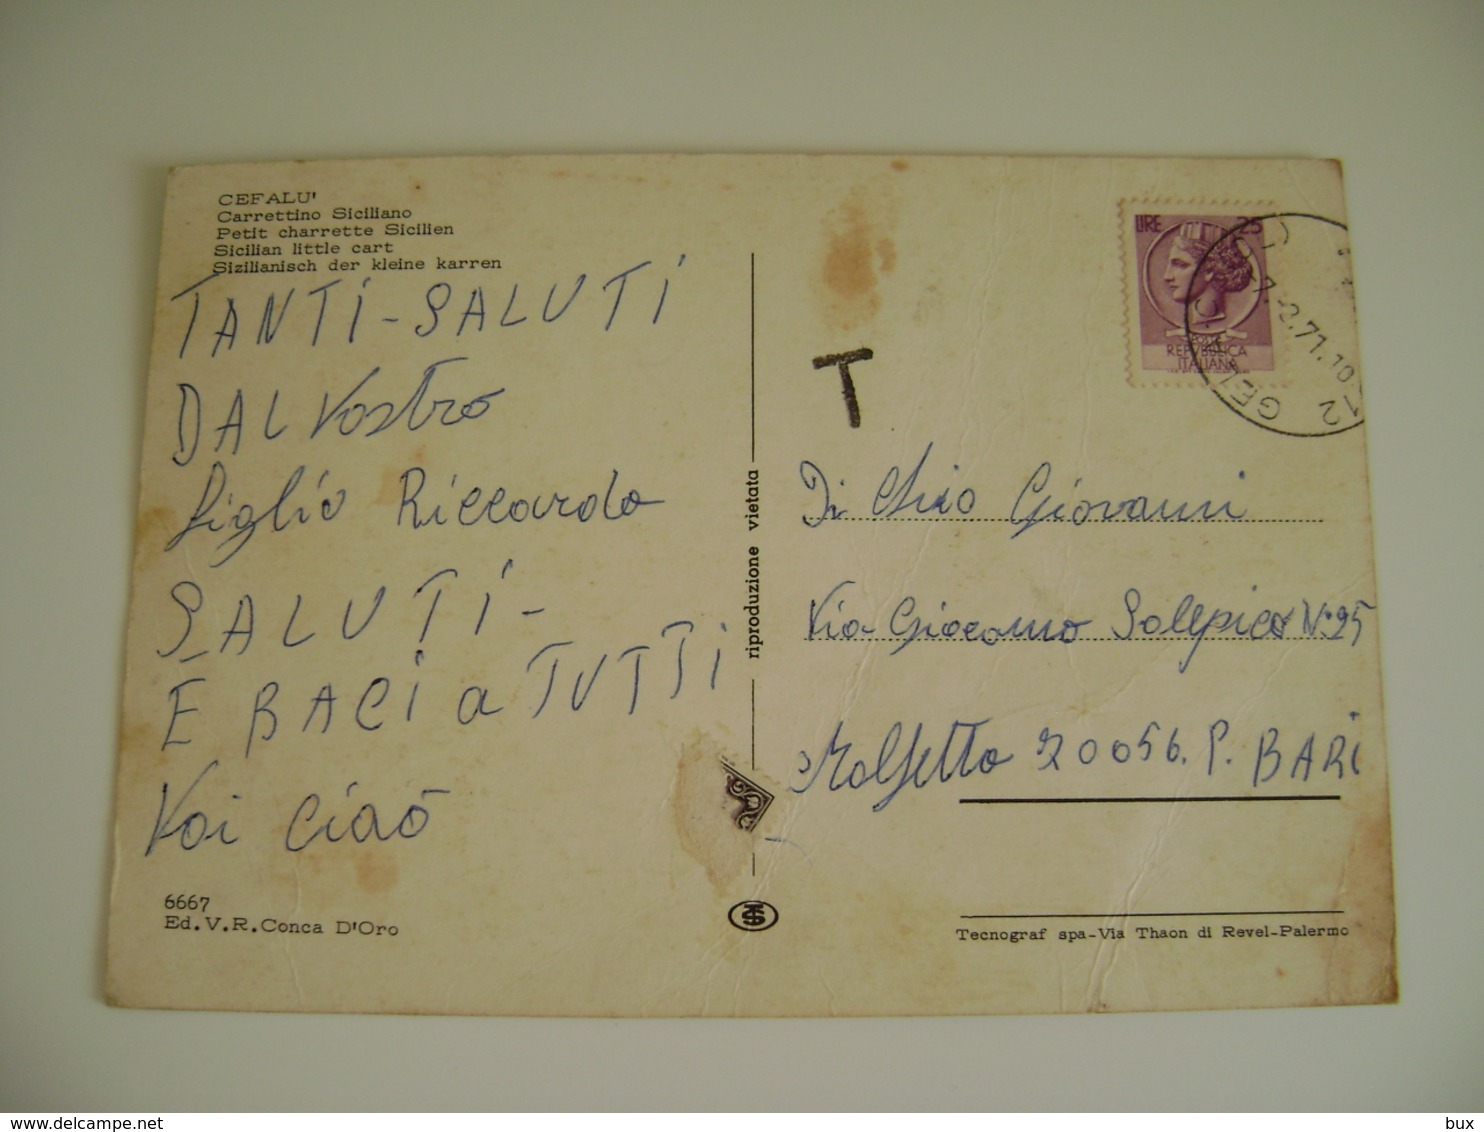 CEFALU'
Carrettino Siciliano
Petit charrette Sicilien
Sicilian little cart
Sizilianisch der kleine karren
TANTI - SALUTI
DAL Vostro
figlio Riccardo
SALUTI -
E BACI a TUTTI
Voi Ciaō
6667
Ed. V. R. Conca D'Oro
riproduzione vietata
T
LIRE 25
REPUBBLICA
ITALIANA
Di Chio Giovanni
Via Giacomo Salepico N° 95
Molfetta 70056. P. BARI
Tecnograf spa-Via Thaon di Revel-Palermo
www.delcampe.net
bux